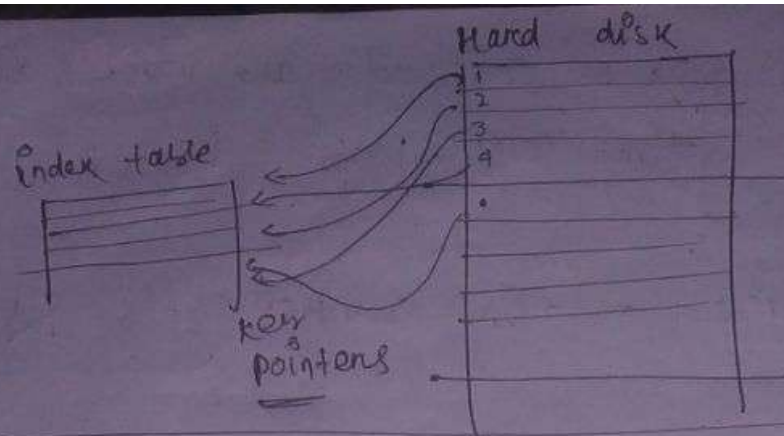 Hard disk
1
2
3
4
index table
key
pointers